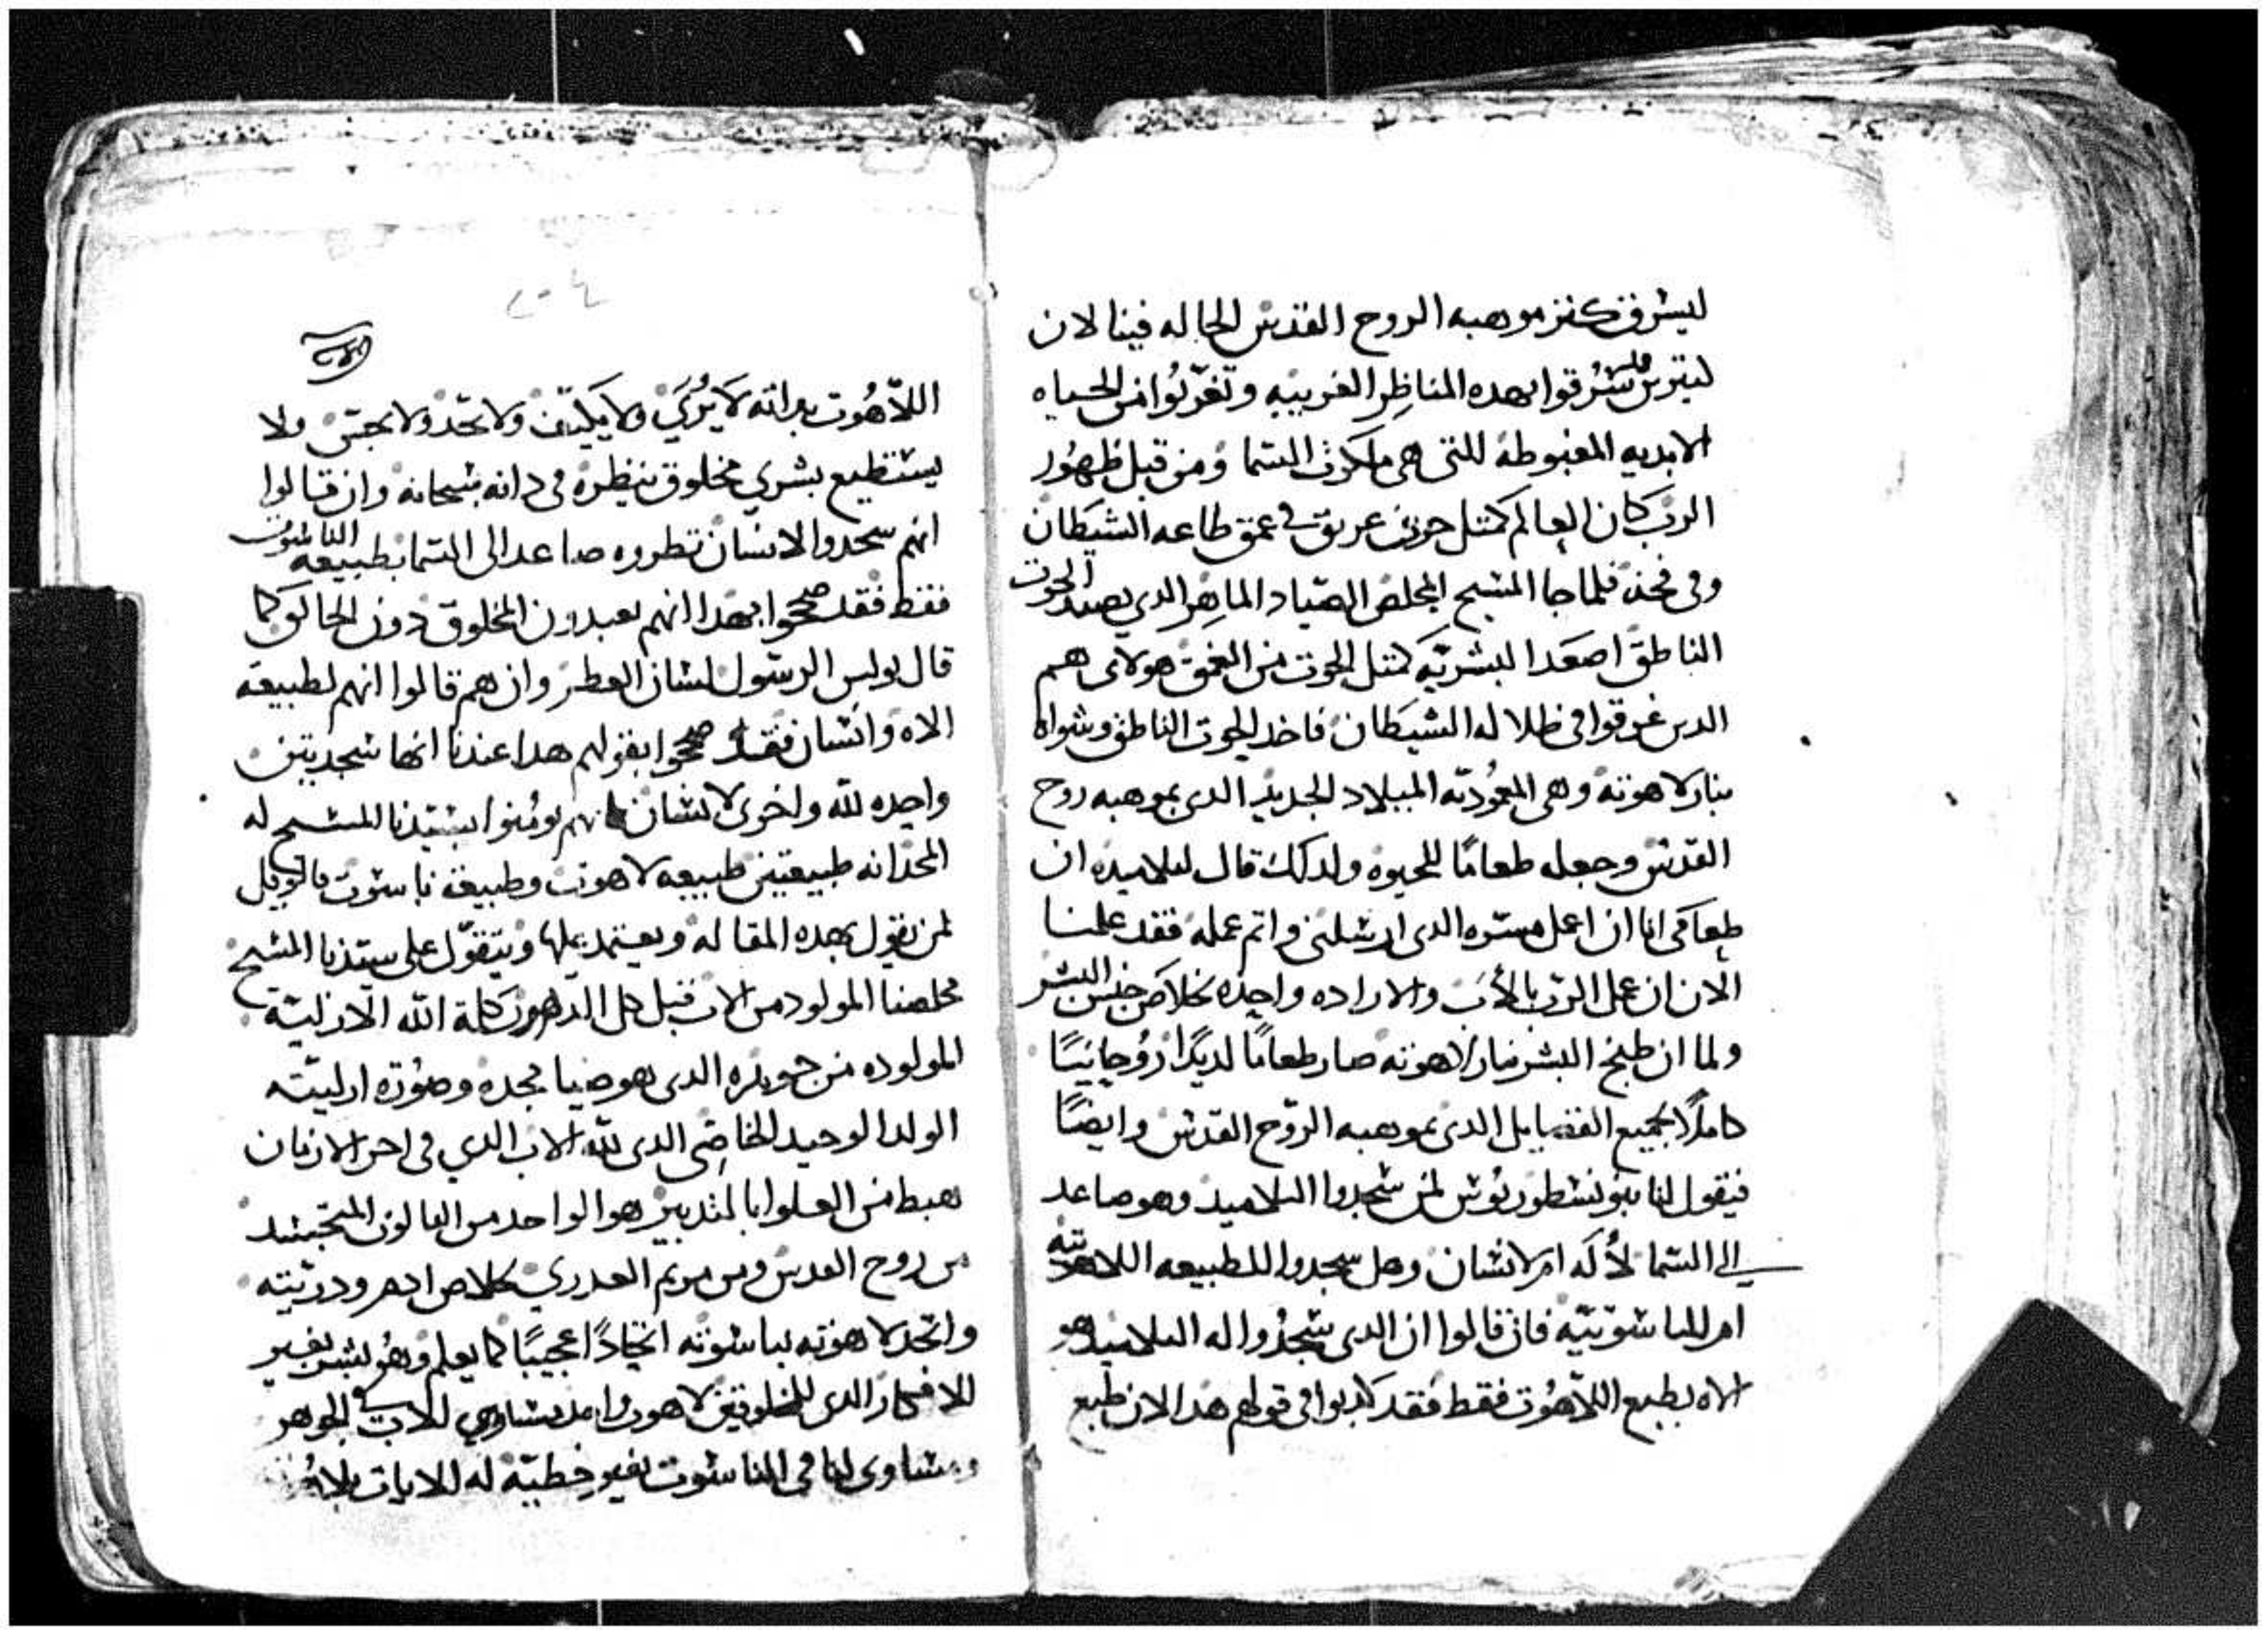 ليسرق كنز موهبه الروح القدس الحاله فينا لان
كثيرين سرقوا بهده المناظر الغريبه وتغربوا من الحياه
الابديه المغبوطه للتى هى ملكوت السما ومن قبل ظهور
الرب كان العالم كمتل حوت غريق في عمق طاعه الشيطان
وفى فخه فلما جا المسيح المخلص الصياد الماهر الدي يصيد الحوت
الناطق اصعد البشريه كمتل الحوت من العمق هولاى هم
الدين غرقوا فى ظلاله الشيطان فاخد الحوت الناطق وشواه
بنار لاهوته وهى المعموديه الميلاد الجديد الدى بموهبه روح
القدس وجعله طعامًا للحيوه ولدلك قال لتلاميده ان
طعامى انا ان اعمل مسره الدى ارسلنى واتم عمله فقد علمنا
الان ان عمل الرب بالأب والاراده واحده بخلاص جنس البشر
ولما ان طبخ البشر بنار لاهوته صار طعامًا لديدًا روحانيًا
كاملًا بجميع الفضايل الدى بموهبه الروح القدس وايضًا
فيقول لنا بنو نسطوريوس لمن سجدوا التلاميد وهو صاعد
الى السما لأله ام لانسان وهل سجدوا للطبيعه اللاهوتيه
ام للناسوتيه فان قالوا ان الدى سجدوا له التلاميد هو
الاه بطبع اللاهوت فقط فقد كدبوا فى قولهم هدا لان طبع
٢٠٤
اللاهوت بداته لا يُرى ولا يكيف ولا يحد ولا يجس ولا
يستطيع بشري مخلوق ينظره فى داته سبحانه وان قالوا
انهم سجدوا لانسان نظروه صاعد الى السما بطبيعه الناسوت
فقط فقد صححوا بهدا انهم يعبدون المخلوق دون الخالق كما
قال بولس الرسول لسان العطر وان هم قالوا انهم لطبيعة
الاه وانسان فقد صححوا بقولهم هدا عندنا انها سجدتين
واحده لله واخرى لانسان لم يومنوا بسيدنا المسيح له
المجد انه طبيعتين طبيعه لاهوت وطبيعة ناسوت فالويل
لمن يقول بهده المقاله ويعتمد عليها ويتقول على سيدنا المسيح
مخلصنا المولود من الاب قبل كل الدهور كلمة الله الازلية
المولوده من جوهره الدى هو ضيا مجده وصورة ازليته
الولد الوحيد الخاصى الدى لله الاب الدي فى اخر الازمان
هبط من العلو بالتدبير هو الواحد من التالوت المتجسد
من روح القدس ومن مريم العدري لخلاص ادم ودريته
واتحد لاهوته بناسوته اتحادًا عجيبًا كما يعلم وهو بشر بغير
مساوي للاب في الجوهر
ومساوى لنا فى الناسوت بغير خطيّة له الايات